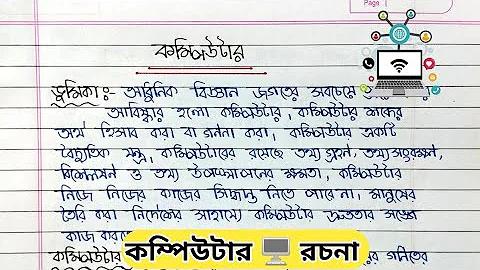 Page
কম্পিউটার
ভূমিকা: আধুনিক বিজ্ঞান জগতের সবচেয়ে
আবিষ্কার হলো কম্পিউটার, কম্পিউটার শব্দের
অর্থ হিসাব করা বা গননা করা, কম্পিউটার একটি
বৈদ্যুতিক যন্ত্র, কম্পিউটারের রয়েছে তথ্য গ্রহন, তথ্য সংরক্ষণ,
বিশ্লেষন ও তথ্য উপস্থাপনের ক্ষমতা, কম্পিউটার
নিজে নিজের কাজের সিদ্ধান্ত নিতে পারে না, মানুষের
তৈরি করা নির্দেশের সাহায্যে কম্পিউটার দ্রুততার সঙ্গে
কাজ
কম্পিউটার রচনা
গনিতের